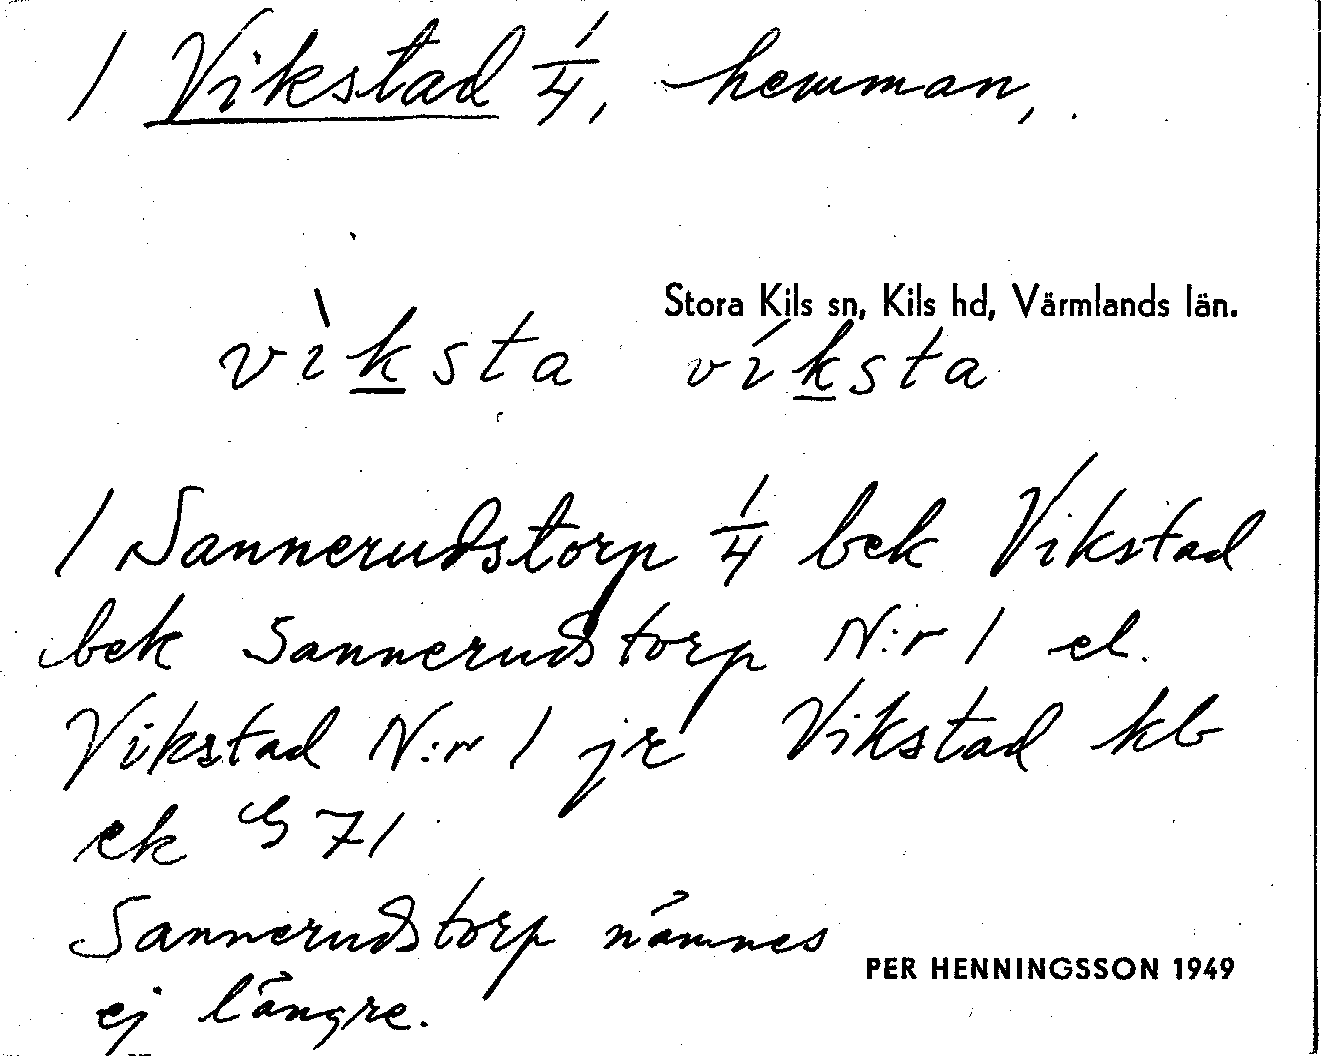 1 Vikstad 1/4, hemman,
Stora Kils sn, Kils hd, Värmlands län.
vìksta víksta
1 Sannerudstorp 1/4 bek Vikstad
bek Sannerudstorp N:r 1 el.
Vikstad N:r 1 jr Vikstad kb
ek G 71
Sannerudstorp nämnes
ej längre.
PER HENNINGSSON 1949